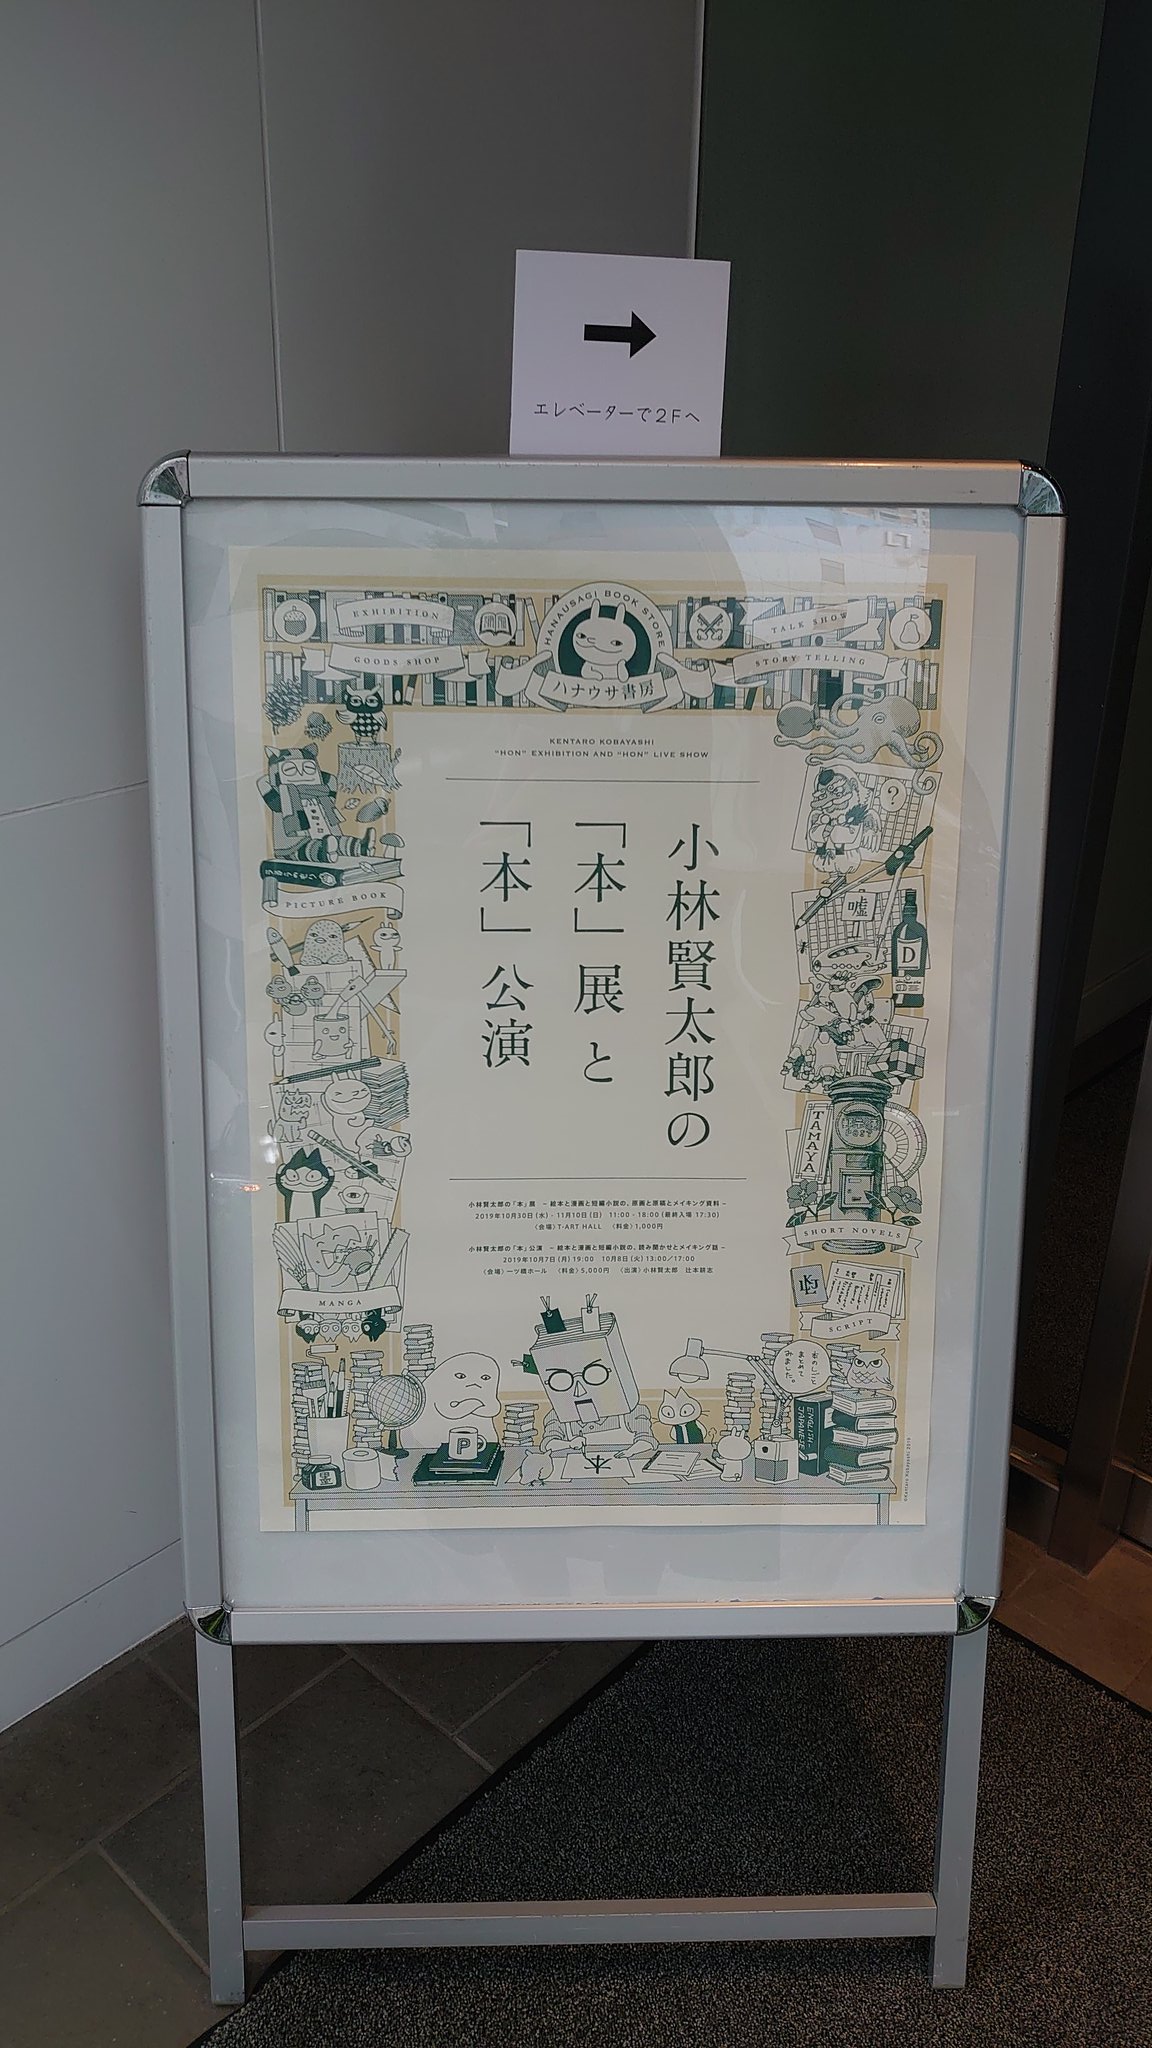 エレベーターで2Fへ
HANAUSAGI BOOK STORE
ハナウサ書房
EXHIBITION
GOODS SHOP
TALK SHOW
STORY TELLING
KENTARO KOBAYASHI
"HON" EXHIBITION AND "HON" LIVE SHOW
小林賢太郎の
「本」展と
「本」公演
PICTURE BOOK
MANGA
?
嘘
D
TAMAYA
POST
SHORT NOVELS
SCRIPT
小林賢太郎の「本」展 −絵本と漫画と短編小説の、原画と原稿とメイキング資料−
2019年10月30日(水)-11月10日(日) 11:00-18:00(最終入場 17:30)
〈会場〉T-ART HALL 〈料金〉1,000円
小林賢太郎の「本」公演 −絵本と漫画と短編小説の、読み聞かせとメイキング話−
2019年10月7日(月)19:00 10月8日(火)13:00/17:00
〈会場〉一ツ橋ホール 〈料金〉5,000円 〈出演〉小林賢太郎 辻本耕志
本のしごと
まとめて
みました。
P
墨
本
ENGLISH-
JAPANESE
©Kentaro Kobayashi 2019